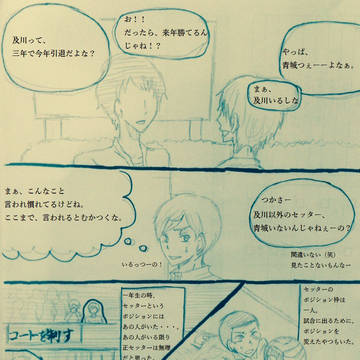 やっぱ、
青城つぇーーよなぁ。
まぁ、
及川いるしな
お！！
だったら、来年勝てるん
じゃね！？
及川って、
三年で今年引退だよな？
つかさー
及川以外のセッター、
青城いないんじゃねぇーの？
間違いない（笑）
見たことないもんなー
まぁ、こんなこと
言われ慣れてるけどね。
ここまで、言われるとむかつくな。
いるっつーの！
セッターの
ポジション枠は
一人。
試合に出るために、
ポジションを
変えたやつもいた。
一年生の時、
セッターという
ポジションには
あの人がいた・・・。
あの人がいる限り
正セッターは無理
だと思った。
コートを制す